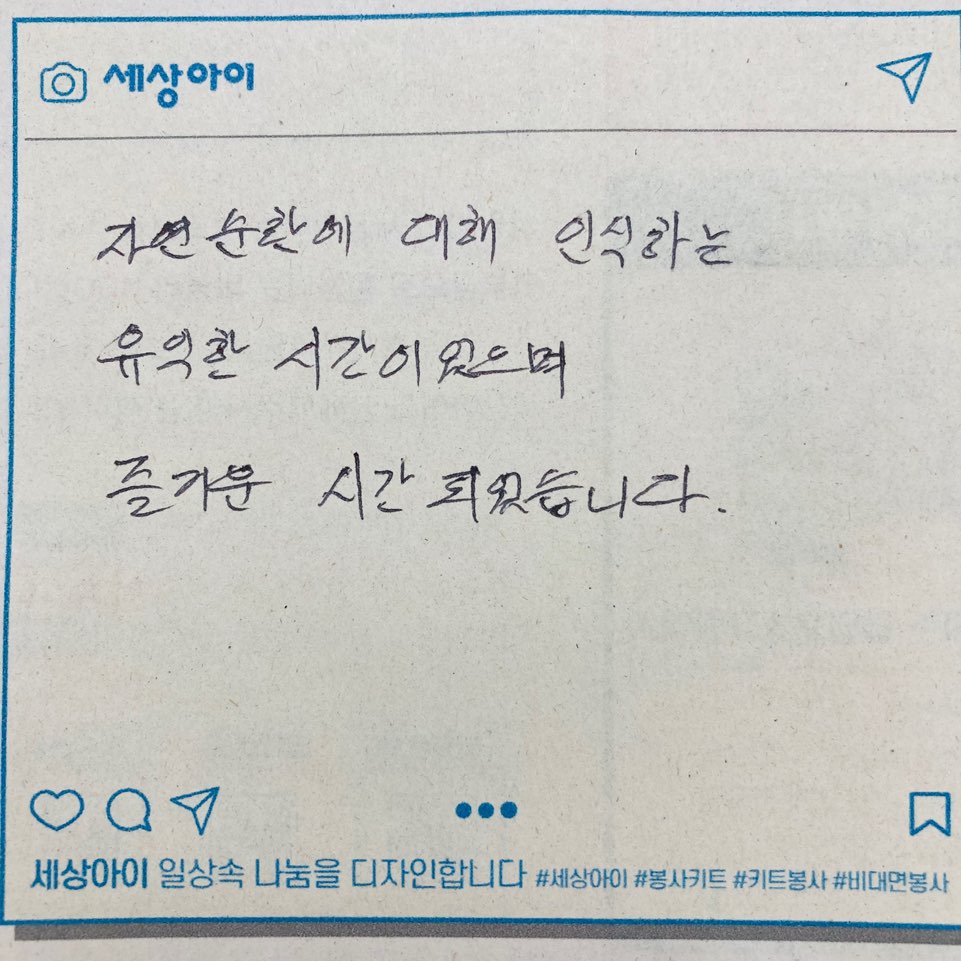 세상아이
자연순환에 대해 인식하는
유익한 시간이 었으며
즐거운 시간 되었습니다.
세상아이 일상속 나눔을 디자인합니다 #세상아이 #봉사키트 #키트봉사 #비대면봉사